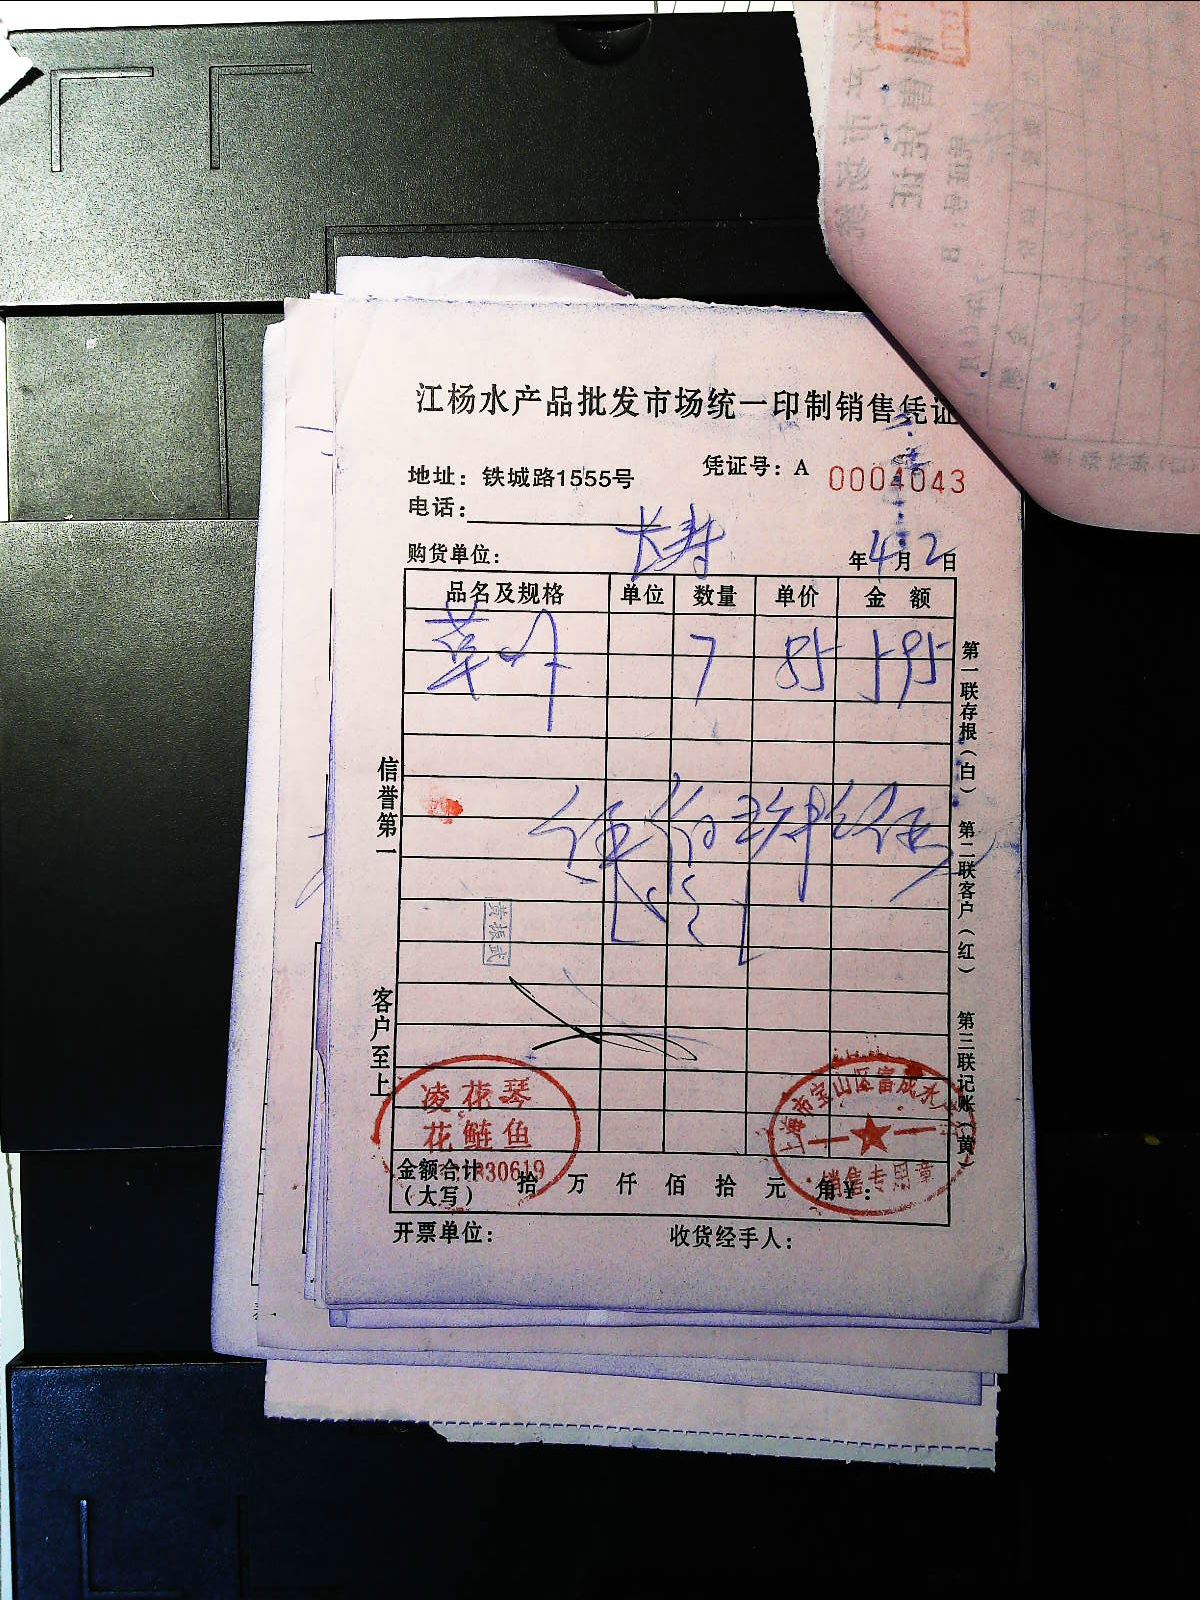 江杨水产品批发市场统一印制销售凭证
地址：铁城路1555号
凭证号：A 0004043
电话：
购货单位：长寿
年4月2日
品名及规格 单位 数量 单价 金额
草 7 85 595
伍佰玖拾伍
信誉第一
客户至上
第一联存根（白）
第二联客户（红）
第三联记账（黄）
黄振武
凌花琴
花鲢鱼
830619
上海市宝山区富成水
销售专用章
金额合计（大写） 拾 万 仟 佰 拾 元 角 ¥：
开票单位：
收货经手人：